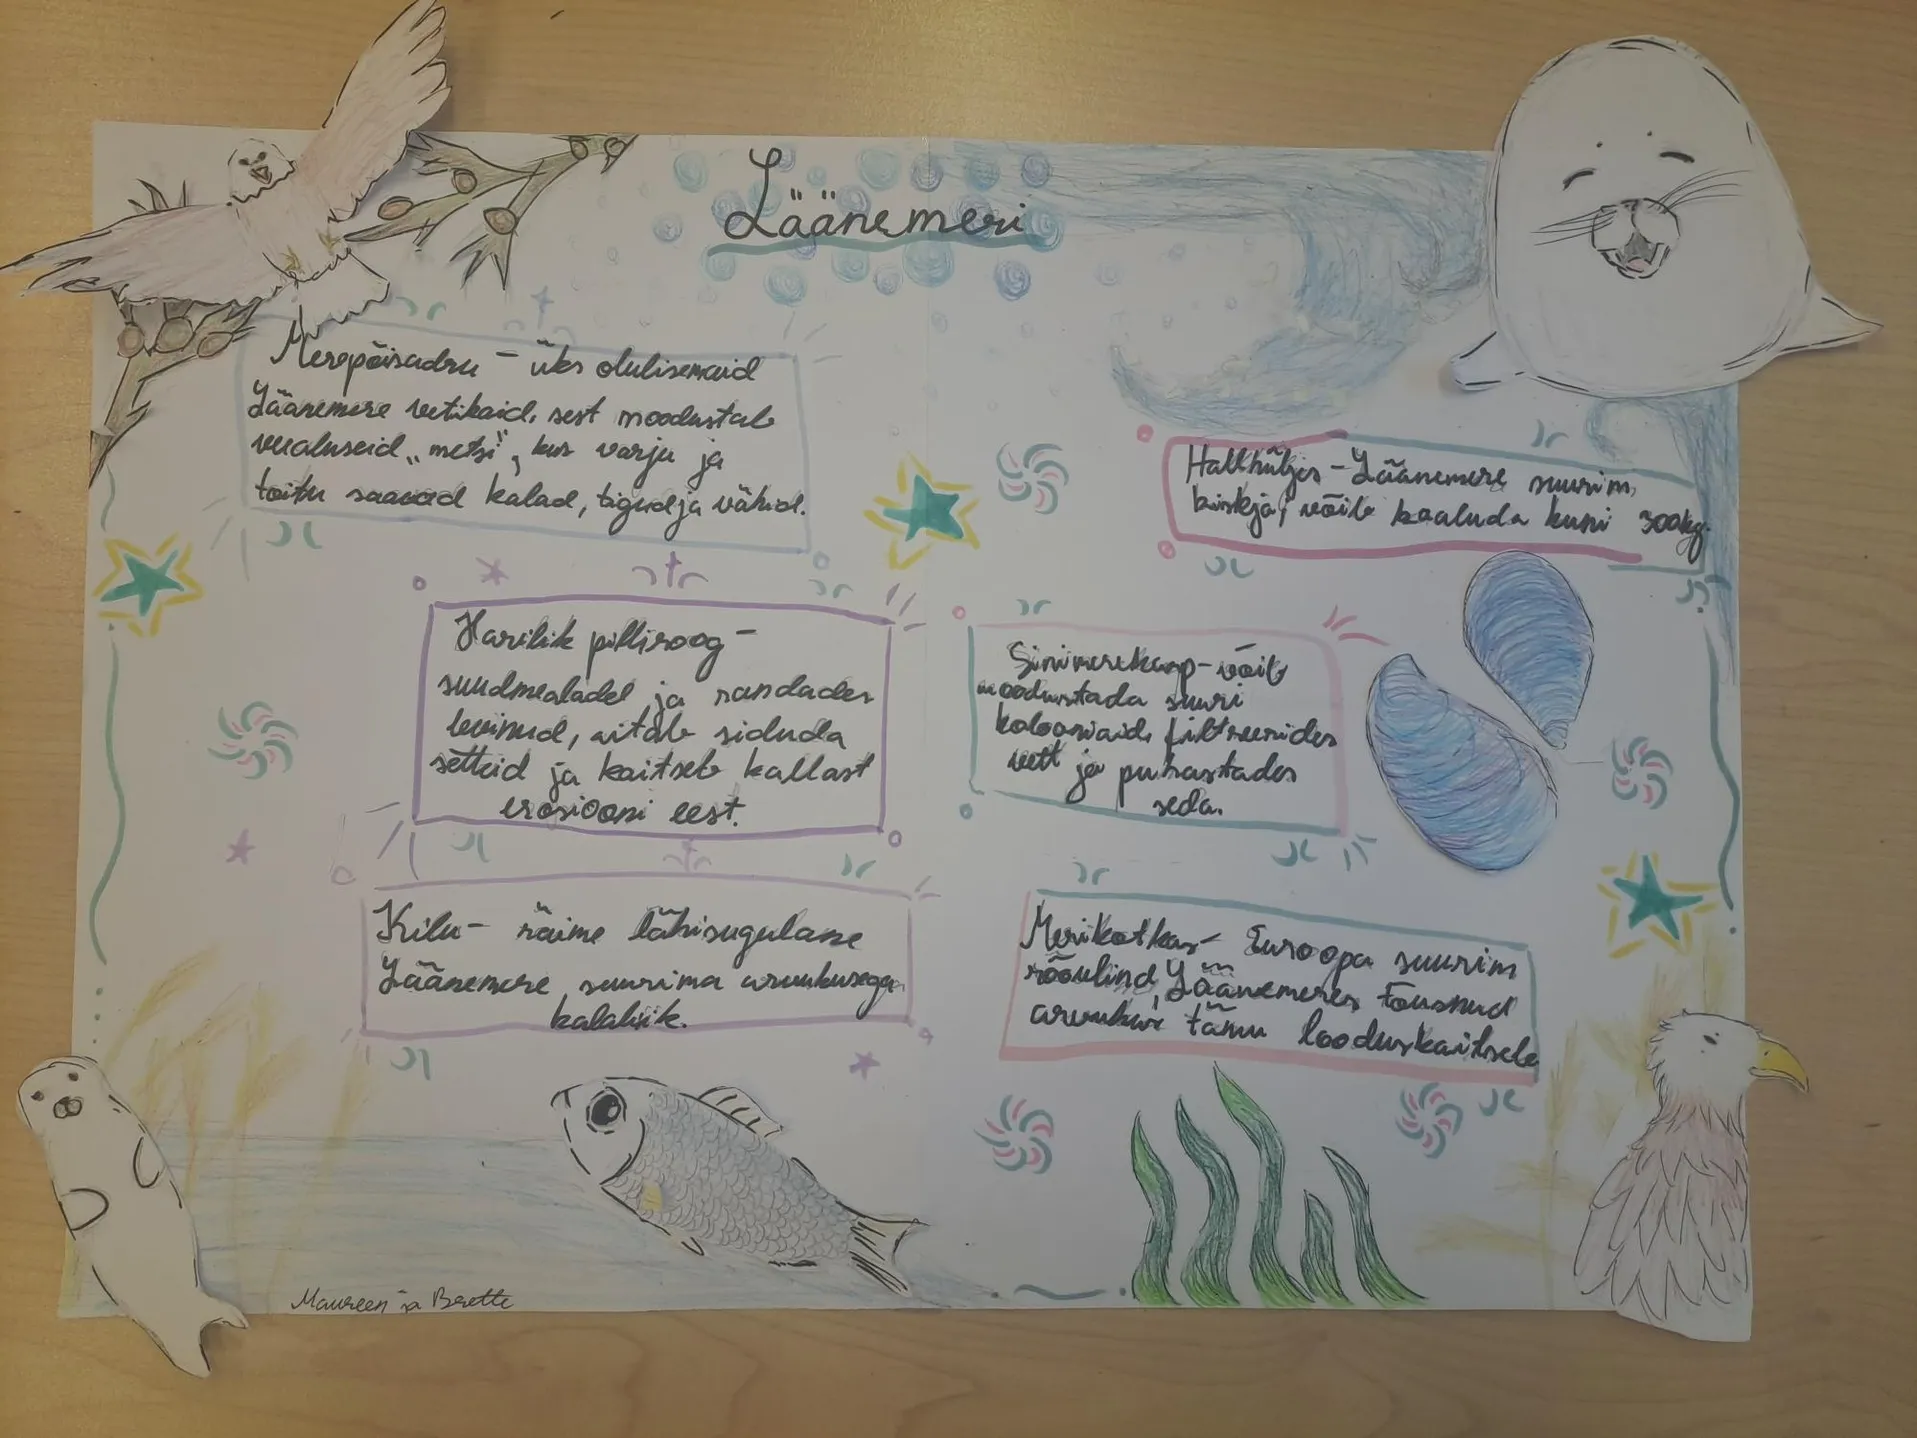 Läänemeri
Merepõisadru – üks olulisemaid
Läänemere vetikaid, sest moodustab
veealuseid „metsi", kus varju ja
toitu saavad kalad, tigud ja vähid.
Hallhüljes – Läänemere suurim
kiskja, võib kaaluda kuni 300kg.
Harilik pilliroog –
suudmealadel ja randades
levinud, aitab siduda
setteid ja kaitseb kallast
erosiooni eest.
Sinimerekarp – võib
moodustada suuri
kolooniaid, filtreerides
vett ja puhastades
seda.
Kilu – räime lähisugulane
Läänemere suurima arvukusega
kalaliik.
Merikotkas – Euroopa suurim
röövlind, Läänemeres tõusnud
arvukus tänu looduskaitsele
Maureen ja Brette